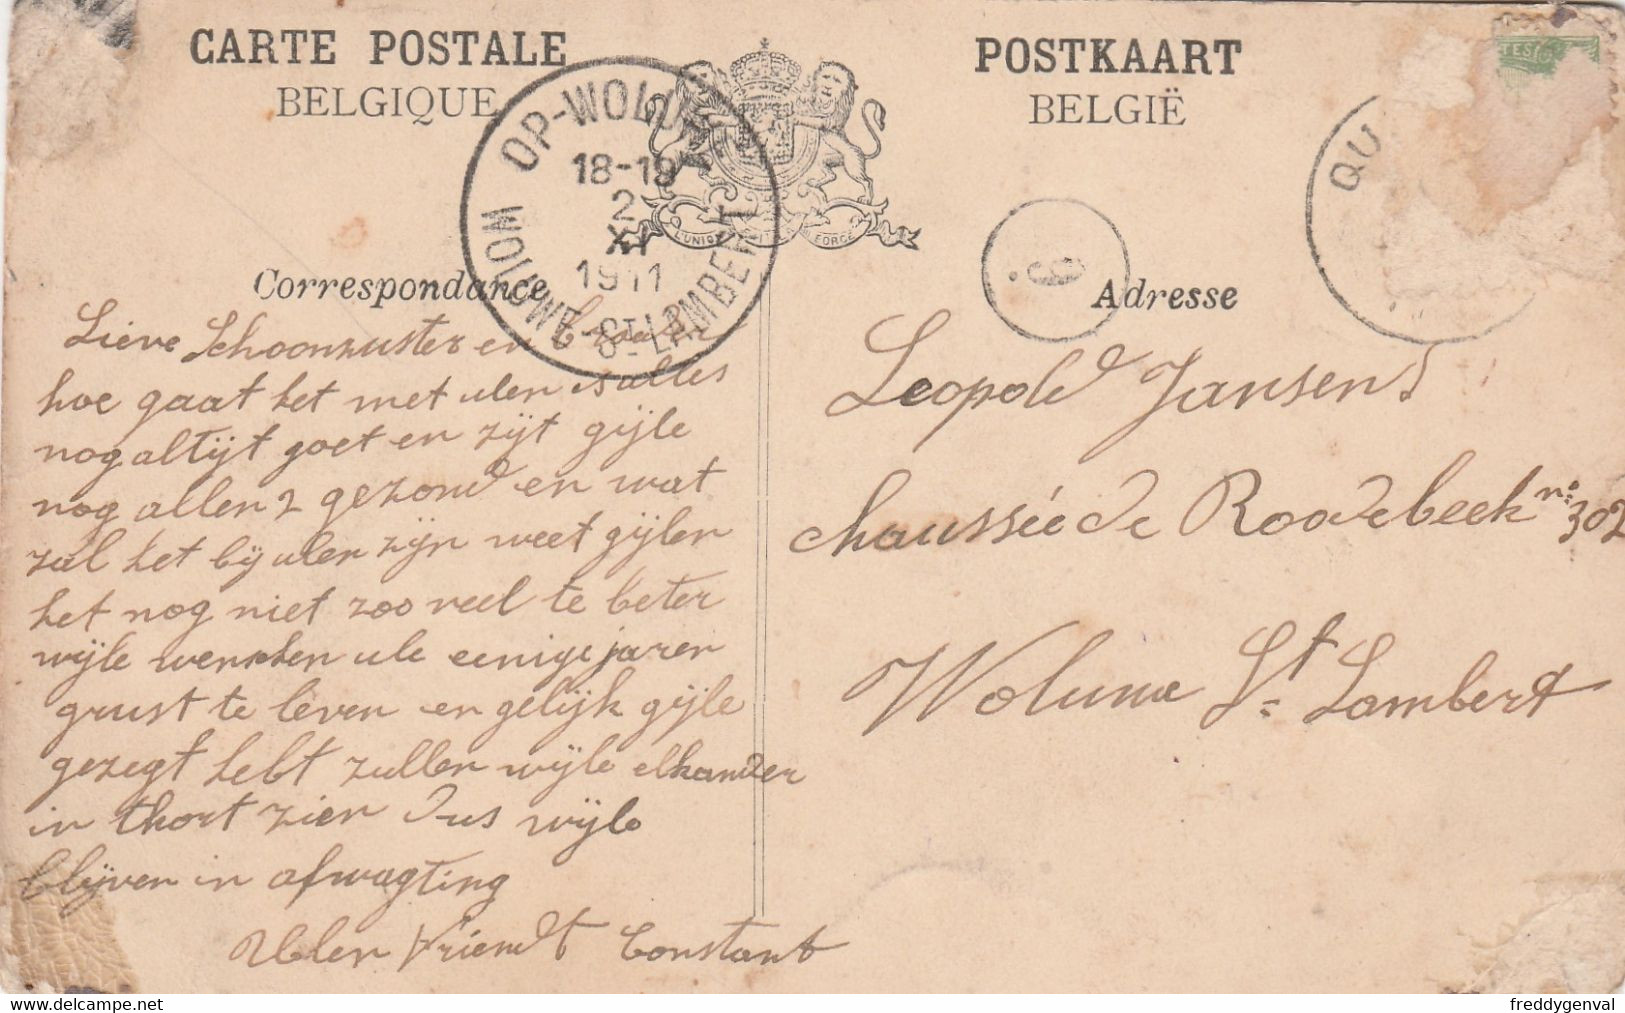 CARTE POSTALE
BELGIQUE
POSTKAART
BELGIË
OP-WOLUWE
ST LAMBERT
WOLUWE
18-19
2
XI
1911
QU
6
L'UNION FAIT LA FORCE
Correspondance
Adresse
Liève Schoonzuster en broeder
hoe gaat het met ulen is alles
nog altijt goet en zijt gijle
nog allen 2 gezond en wat
zal het bij ulen zijn weet gijlen
het nog niet zoo veel te beter
wijle wenschen ule eenige jaren
grust te leven en gelijk gijle
gezegt hebt zullen wijle elkander
in tkort zien dus wijle
blijven in afwagting
Ulen Vriendt Constant
Leopold Jansens
chaussée de Roodebeek n° 302
Woluwe St Lambert
freddygenval